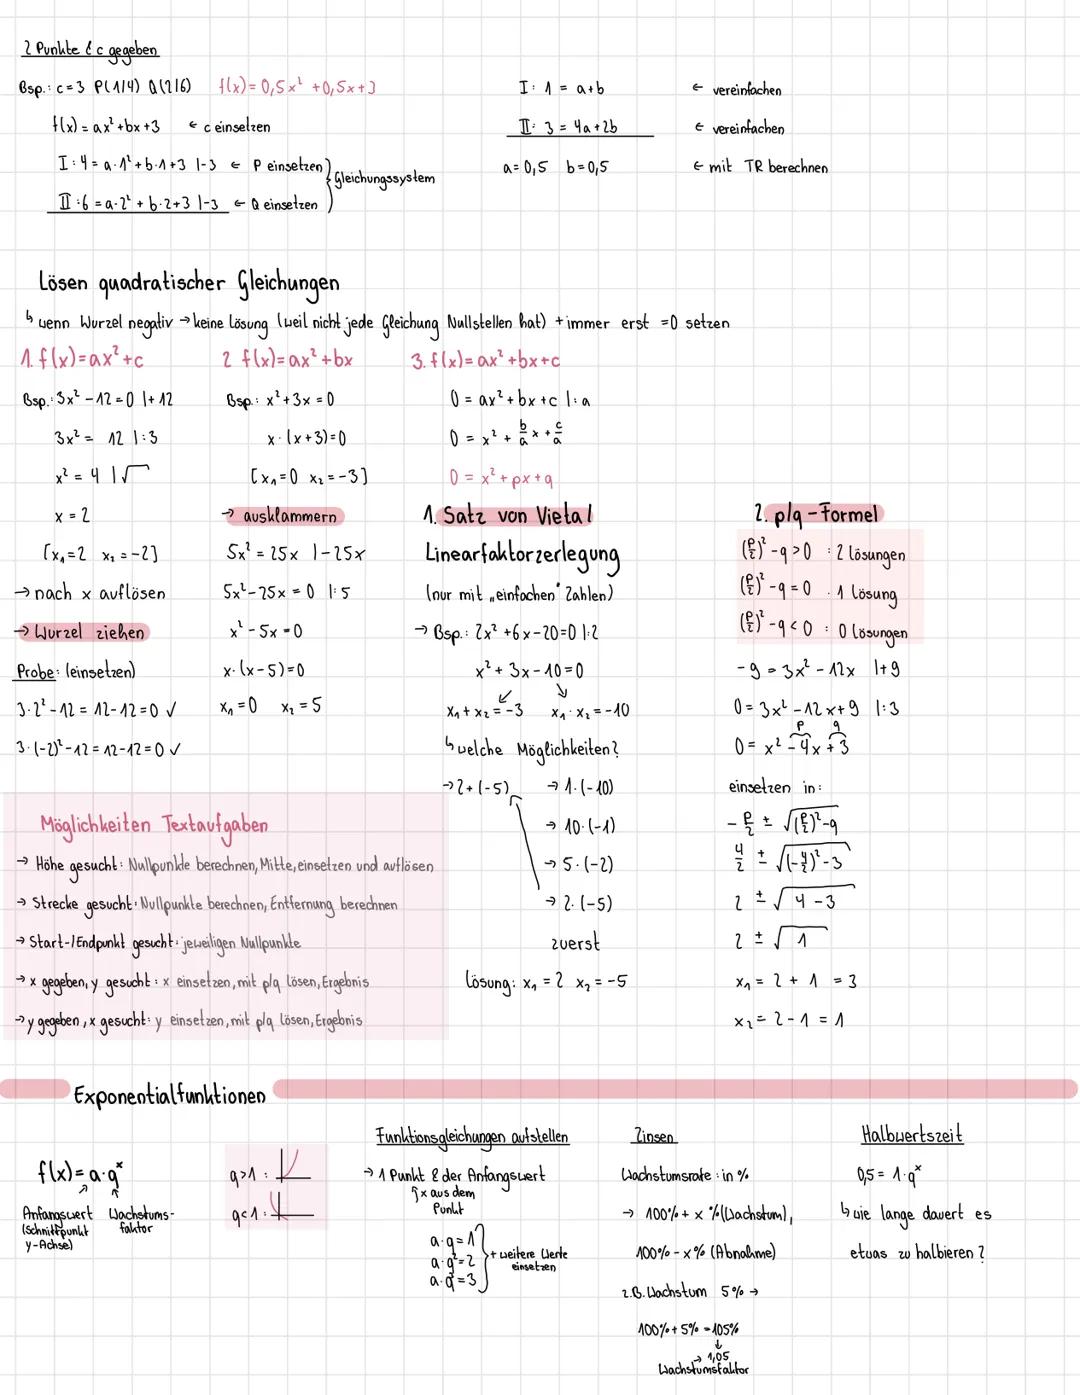 2 Punkte & c gegeben
Bsp.: c=3 P(1/4) Q(2/6) f(x)=0,5x²+0,5x+3
f(x)=ax²+bx+3 ← c einsetzen
I: 4=a·1²+b·1+3 |-3 ← P einsetzen
II: 6=a·2²+b·2+3 |-3 ← Q einsetzen
Gleichungssystem
I: 1 = a+b ← vereinfachen
II: 3 = 4a+2b ← vereinfachen
a=0,5 b=0,5 ← mit TR berechnen
Lösen quadratischer Gleichungen
↳ wenn Wurzel negativ → keine Lösung (weil nicht jede Gleichung Nullstellen hat) + immer erst =0 setzen
1. f(x)=ax²+c
Bsp.: 3x²-12=0 |+12
3x² = 12 |:3
x² = 4 |√
x = 2
[x₁=2 x₂=-2]
→ nach x auflösen
→ Wurzel ziehen
Probe: (einsetzen)
3·2²-12=12-12=0 ✓
3·(-2)²-12=12-12=0 ✓
2 f(x)=ax²+bx
Bsp.: x²+3x=0
x·(x+3)=0
[x₁=0 x₂=-3]
→ ausklammern
5x²=25x |-25x
5x²-25x=0 |:5
x²-5x=0
x·(x-5)=0
x₁=0 x₂=5
3. f(x)=ax²+bx+c
0=ax²+bx+c |:a
0=x²+b/a x+c/a
0=x²+px+q
1. Satz von Vieta/
Linearfaktorzerlegung
(nur mit „einfachen" Zahlen)
→ Bsp.: 2x²+6x-20=0 |:2
x²+3x-10=0
↙ ↘
x₁+x₂=-3 x₁·x₂=-10
↳ welche Möglichkeiten?
→ 2+(-5) → 1·(-10)
→ 10·(-1)
→ 5·(-2)
→ 2·(-5)
zuerst
Lösung: x₁=2 x₂=-5
2. p/q-Formel
(p/2)²-q>0 : 2 Lösungen
(p/2)²-q=0 : 1 Lösung
(p/2)²-q<0 : 0 Lösungen
-9=3x²-12x |+9
0=3x²-12x+9 |:3
p q
0=x²-4x+3
einsetzen in:
-p/2 ± √((p/2)²-q)
4/2 ± √((-4/2)²-3)
2 ± √(4-3)
2 ± √1
x₁=2+1=3
x₂=2-1=1
Möglichkeiten Textaufgaben
→ Höhe gesucht: Nullpunkte berechnen, Mitte, einsetzen und auflösen
→ Strecke gesucht: Nullpunkte berechnen, Entfernung berechnen
→ Start-/Endpunkt gesucht: jeweiligen Nullpunkte
→ x gegeben, y gesucht: x einsetzen, mit p/q lösen, Ergebnis
→ y gegeben, x gesucht: y einsetzen, mit p/q lösen, Ergebnis
Exponentialfunktionen
f(x)=a·qˣ
Anfangswert
(Schnittpunkt
y-Achse)
Wachstums-
faktor
q>1 :
q<1 :
Funktionsgleichungen aufstellen
→ 1 Punkt & der Anfangswert
↑x aus dem
Punkt
a·q=1
a·q²=2
a·q³=3
+ weitere Werte
einsetzen
Zinsen
Wachstumsrate: in %
→ 100%+x%(Wachstum),
100%-x% (Abnahme)
z.B. Wachstum 5% →
100%+5%=105%
↓
→ 1,05
Wachstumsfaktor
Halbwertszeit
0,5=1·qˣ
↳ wie lange dauert es
etwas zu halbieren?